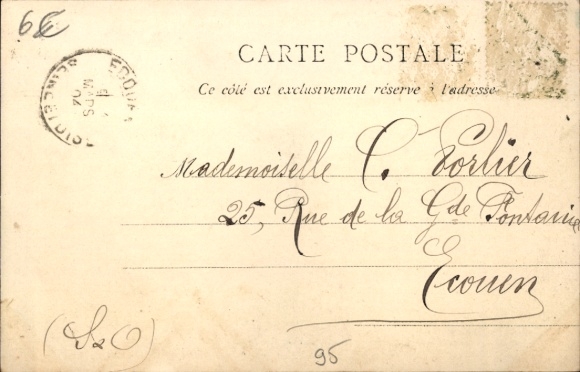 6
CARTE POSTALE
Ce côté est exclusivement réservé à l'adresse
ECOUEN
MARS
04
SEINE-ET-OISE
Mademoiselle C. Porlier
25, Rue de la Gde Fontaine
Ecouen
(S & O)
95